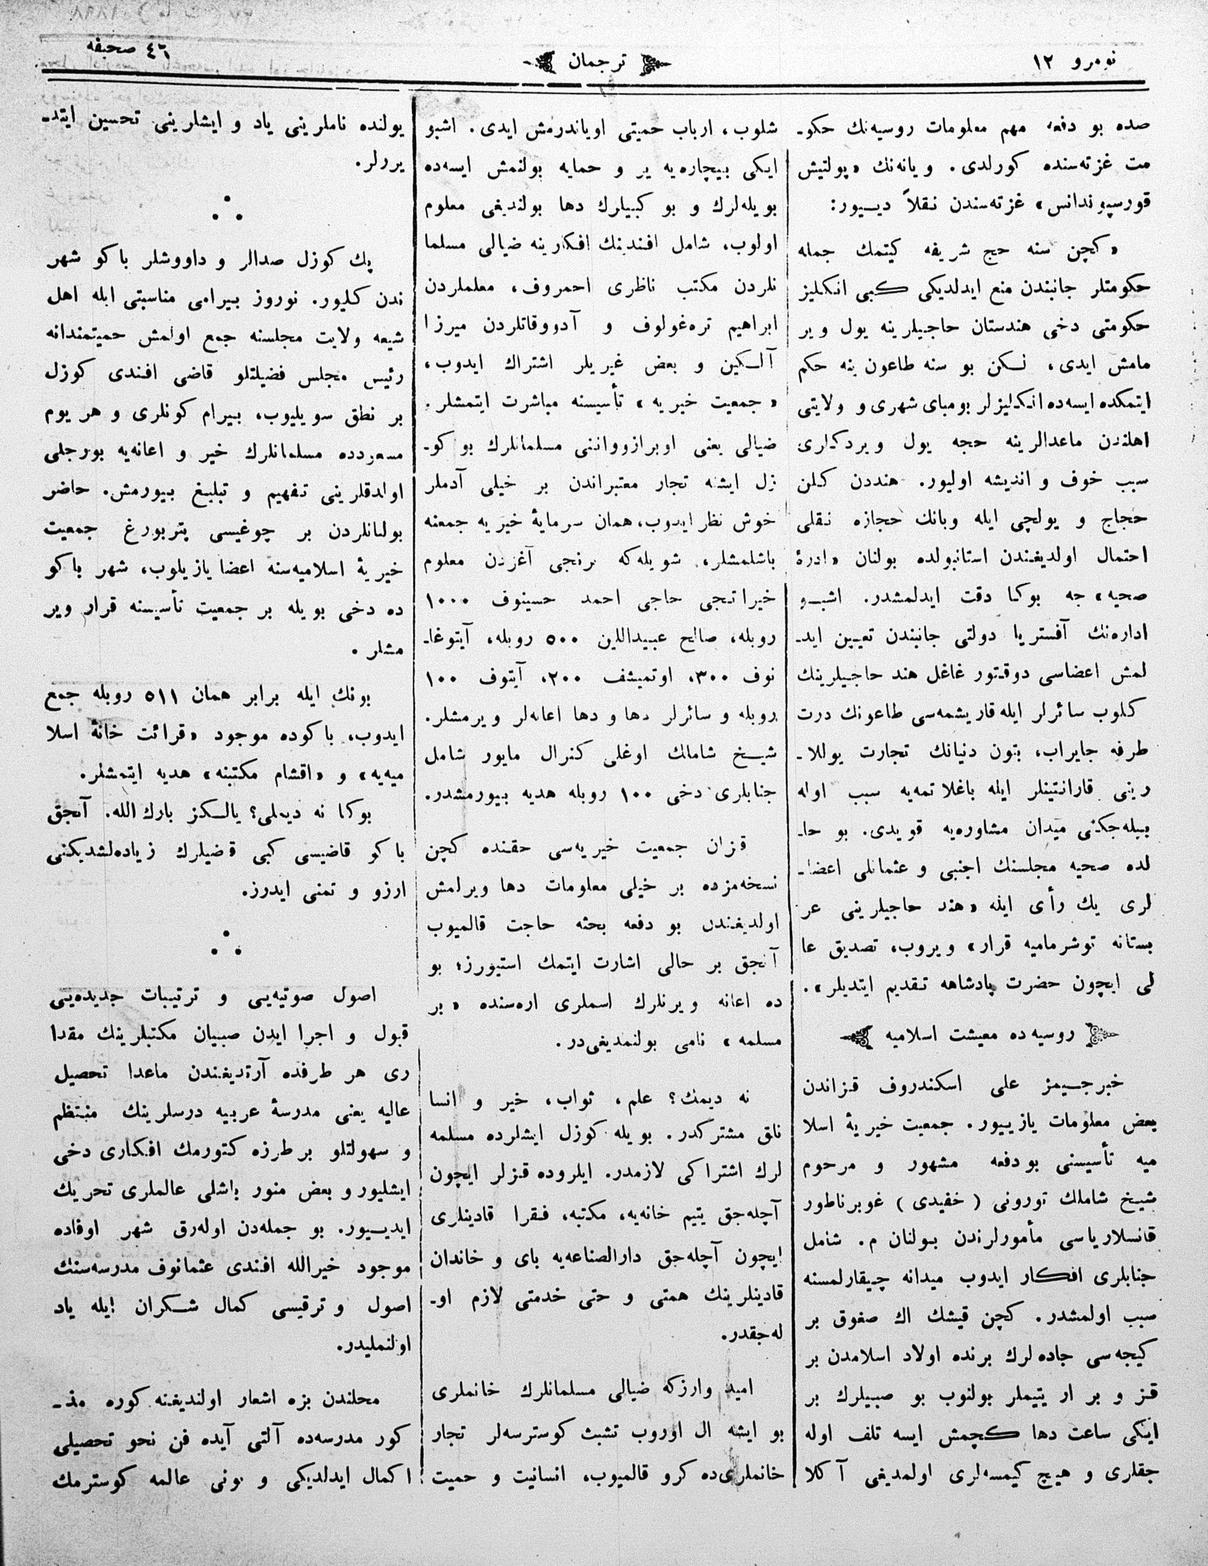 نومرو ١٢
ترجمان
٤٦ صحیفه
صده بو دفعه مهم معلومات روسیه‌نك حكو-
مت غزته‌سنده كورلدی. ویانه‌نك «پولتیش
قورسپوندانس» غزته‌سندن نقلاً دییور:
«كچن سنه حج شریفه كیتمك جمله
حكومتلر جانبندن منع ایدلدیكی كبی انكلیز
حكومتی دخی هندستان حاجیلرینه یول ویر
مامش ایدی، لكن بو سنه طاعون ینه حكم
ایتمكده ایسه‌ده انكلیزلر بومبای شهری و ولایتی
اهلندن ماعدالرینه حجه یول ویردكلری
سبب خوف و اندیشه اولیور. هنددن كلن
حجاج و یولجی ایله وبانك حجازه نقلی
احتمال اولدیغندن استانبولده بولنان «ادرهٔ
صحیه» جه بوكا دقت ایدلمشدر. اشبو
اداره‌نك آفستریا دولتی جانبندن تعیین اید-
لمش اعضاسی دوقتور غاغل هند حاجیلرینك
كلوب سائرلر ایله قاریشمه‌سی طاعونك درت
طرفه جایراب، بتون دنیانك تجارت یوللا-
رینی قارانتینلر ایله باغلاتمه‌یه سبب اوله
بیله‌جكنی میدان مشاوره‌یه قویدی. بو حا-
لده صحیه مجلسنك اجنبی و عثمانلی اعضا-
لری یك رأی ایله «هند حاجیلرینی عر
بستانه توشرمامیه قرار» ویروب، تصدیق عا
لی ایچون حضرت پادشاهه تقدیم ایتدیلر».
روسیه ده معیشت اسلامیه
خبرجیمز علی اسكندروف قزاندن
بعض معلومات یازییور. جمعیت خیریهٔ اسلا
میه تأسیسنی بودفعه مشهور و مرحوم
شیخ شاملك تورونی (خفیدی) غوبرناطور
قانسلاریاسی مأمورلرندن بولنان م. شامل
جنابلری افكار ایدوب میدانه چیقارلمسنه
سبب اولمشدر. كچن قیشك اك صغوق بر
كیجه‌سی جاده‌لرك برنده اولاد اسلامدن بر
قز و بر ار یتیملر بولنوب بو صبیلرك بر
ایكی ساعت دها كچمش ایسه تلف اوله
جقلری و هیچ كیمسه‌لری اولمدیغی آكلا
شلوب، ارباب حمیتی اویاندرمش ایدی. اشبو
ایكی بیچاره‌یه یر و حمایه بولنمش ایسه‌ده
بویله‌لرك و بو كبیلرك دها بولندیغی معلوم
اولوب، شامل افندینك افكارینه ضیالی مسلما
نلردن مكتب ناظری احمروف، معلملردن
ابراهیم تره‌غولوف و آدووقاتلردن میرزا
آلكین و بعض غیریلر اشتراك ایدوب،
«جمعیت خیریه» تأسیسنه مباشرت ایتمشلر.
ضیالی یعنی اوبرازوواننی مسلمانلرك بو كو-
زل ایشنه تجار معتبراندن بر خیلی آدملر
خوش نظر ایدوب، همان سرمایهٔ خیریه جمعنه
باشلمشلر، شویله‌كه برنجی آغزدن معلوم
خیراتجی حاجی احمد حسینوف ١٠٠٠
روبله، صالح عبیداللین ٥٠٠ روبله، آیتوغا-
نوف ٣٠٠، اوتمیشف ٢٠٠، آیتوف ١٠٠
روبله و سائرلر دها و دها اعانه‌لر ویرمشلر.
شیخ شاملك اوغلی كنرال مایور شامل
جنابلری دخی ١٠٠ روبله هدیه بیورمشدر.
قزان جمعیت خیریه‌سی حقنده كچن
نسخه‌مزده بر خیلی معلومات دها ویرلمش
اولدیغندن بو دفعه بحثه حاجت قالمیوب
آنجق بر حالی اشارت ایتمك استیورز؛ بو
ده اعانه ویرنلرك اسملری اره‌سنده «بر
مسلمه» نامی بولنمدیغی‌در.
نه دیمك؟ علم، ثواب، خیر و انسا
نلق مشتركدر. بویله كوزل ایشلرده مسلمه
لرك اشتراكی لازمدر. ایلروده قزلر ایچون
آچله‌جق یتیم خانه‌یه، مكتبه، فقرا قادینلری
ایچون آچله‌جق دارالصناعه‌یه بای و خاندان
قادینلرینك همتی و حتی خدمتی لازم او-
له‌جقدر.
امید وارزكه ضیالی مسلمانلرك خانملری
بو ایشه ال اوروب تشبث كوسترسه‌لر تجار
خانملری‌ده كرو قالمیوب، انسانیت و حمیت
یولنده ناملرینی یاد و ایشلرینی تحسین ایتد-
یررلر.
پك كوزل صدالر و داووشلر باكو شهر
ندن كلیور. نوروز بیرامی مناسبتی ایله اهل
شیعه ولایت مجلسنه جمع اولمش حمیتمندانه
رئیس مجلس فضیلتلو قاضی افندی كوزل
بر نطق سویلیوب، بیرام كونلری و هر یوم
مسعودده مسلمانلرك خیر و اعانه‌یه بورجلی
اولدقلرینی تفهیم و تبلیغ بیورمش. حاضر
بولنانلردن بر چوغیسی پتربورغ جمعیت
خیریهٔ اسلامیه‌سنه اعضا یازیلوب، شهر باكو
ده دخی بویله بر جمعیت تأسیسنه قرار ویر
مشلر.
بونك ایله برابر همان ٥١١ روبله جمع
ایدوب، باكوده موجود «قرائت خانهٔ اسلا
میه‌یه» و «اقشام مكتبنه» هدیه ایتمشلر.
بوكا نه دیملی؟ یالكز بارك الله. آنجق
باكو قاضیسی كبی قاضیلرك زیاده‌لشدیكنی
ارزو و تمنی ایدرز.
اصول صوتیه‌یی و ترتیبات جدیده‌یی
قبول و اجرا ایدن صبیان مكتبلرینك مقدا
ری هر طرفده آرتدیغندن ماعدا تحصیل
عالیه یعنی مدرسهٔ عربیه درسلرینك منتظم
و سهولتلو بر طرزه كتورمك افكاری دخی
ایشلیور و بعض منور باشلی عالملری تحریك
ایدییور. بو جمله‌دن اوله‌رق شهر اوفاده
موجود خیرالله افندی عثمانوف مدرسه‌سنك
اصول و ترقیسی كمال شكران ایله یاد
اولنملیدر.
محلندن بزه اشعار اولندیغنه كوره مذ-
كور مدرسه‌ده آلتی آیده فن نحو تحصیلی
اكمال ایدلدیكی و بونی عالمه كوسترمك